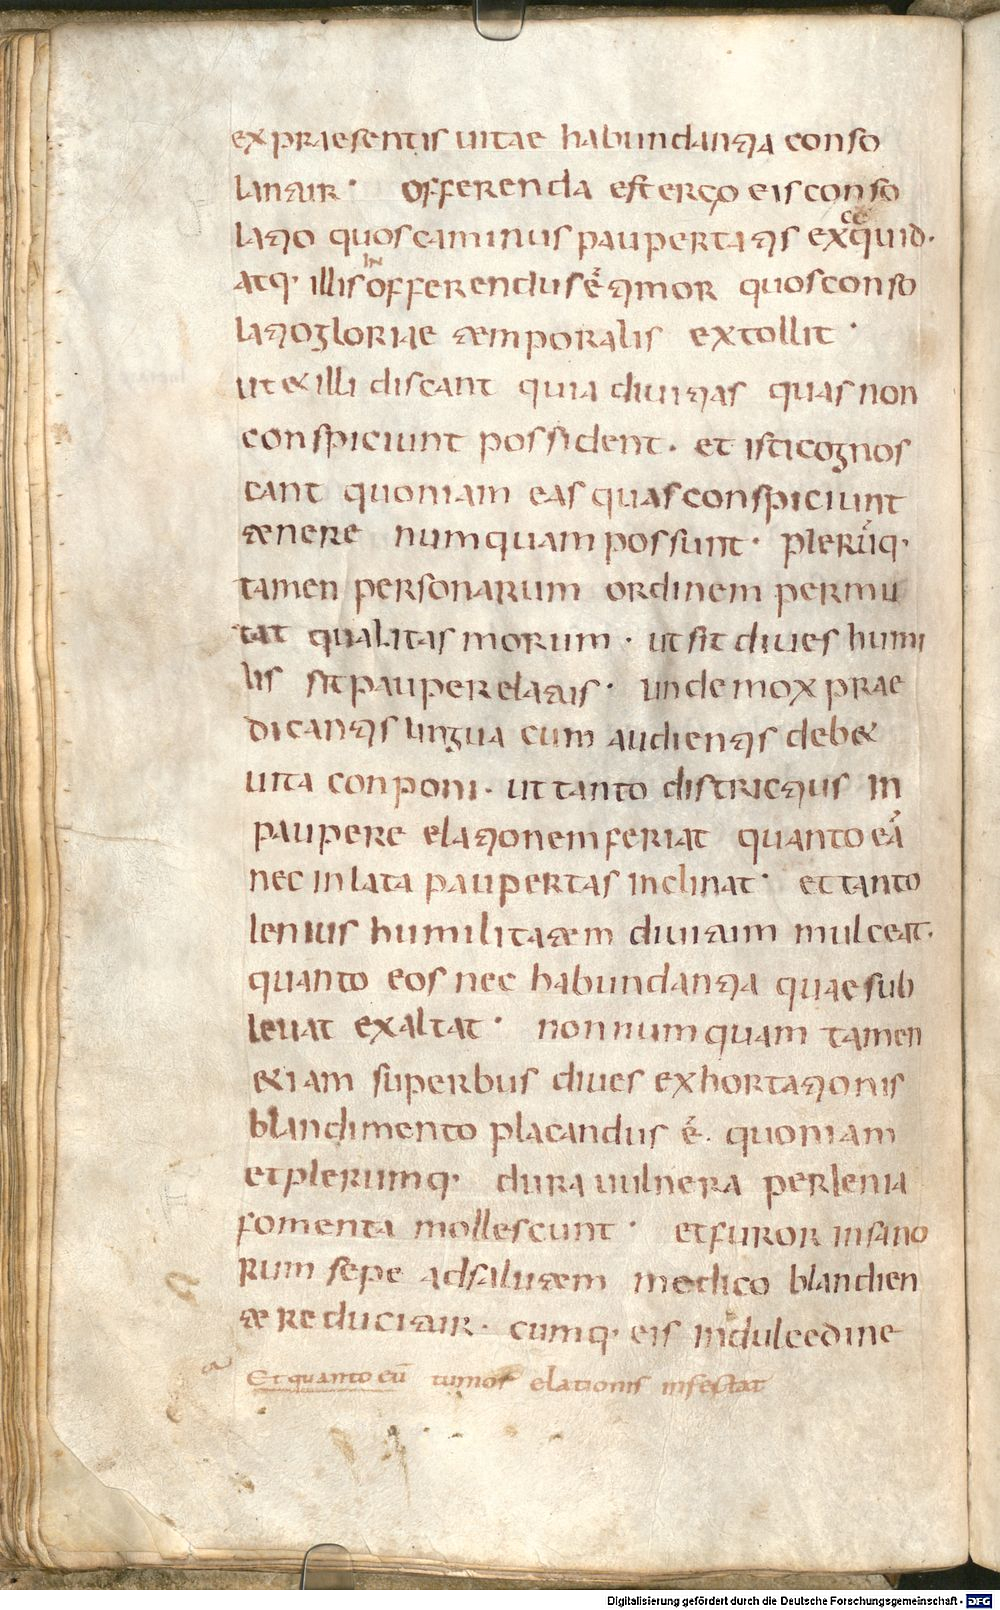 ex praesentis uitae habundantia conso
lantur · offerenda est ergo eis conso
latio quos caminus paupertatis excoquid·
cc
atq· illis offerendus ÷ timor quos conso
in
latio gloriae temporalis extollit ·
ut & illi discant quia diuitias quas non
conspiciunt possident · et isti cognos
cant quoniam eas quas conspiciunt
tenere numquam possunt · plerūq·
tamen personarum ordinem permu
tat qualitas morum · ut sit diues humi
lis sit pauper elatus · unde mox prae
dicantis lingua cum audientis deb&
uita conponi · ut tanto districtius in
paupere elationem feriat quanto eā
nec inlata paupertas inclinat · et tanto
lenius humilitatem diuitum mulceat ·
quanto eos nec habundantia quae sub
leuat exaltat · non numquam tamen
&iam superbus diues exhortationis
blandimento placandus ē · quoniam
et plerumq· dura uulnera per lenia
fomenta mollescunt · et furor insano
rum sepe ad salutem medico blandien
te reducitur · cumq· eis in dulcedine
a Et quanto eū tumor elationis infestat
Digitalisierung gefördert durch die Deutsche Forschungsgemeinschaft - DFG